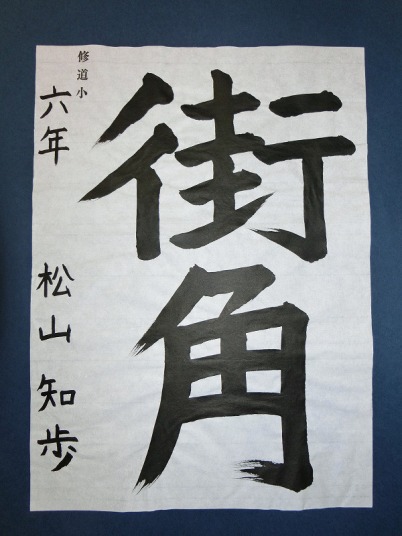 街角
修道小
六年 松山知歩